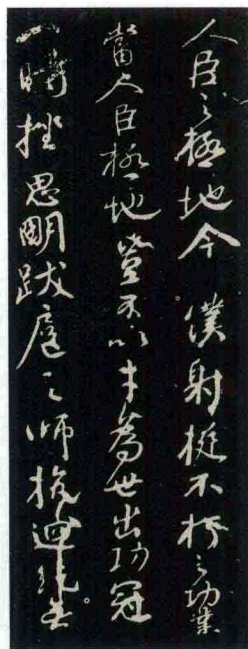 人臣之極地今僕射挺不朽之功業
當人臣極地豈不以才為世出功冠
一時挫思明跋扈之師抗迴紇無